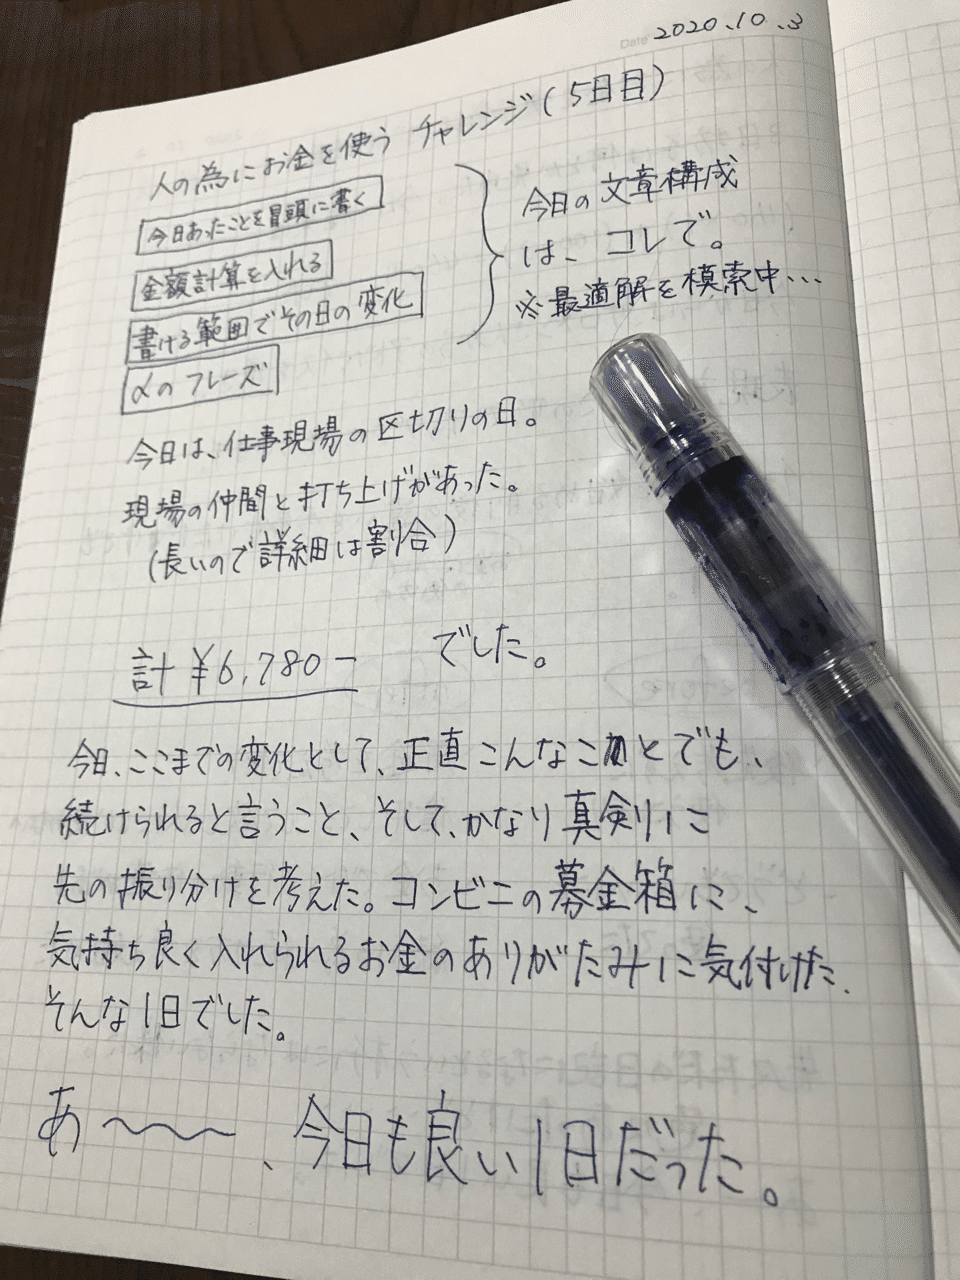 Date 2020.10.3
人の為にお金を使う チャレンジ(5日目)
今日あったことを冒頭に書く
金額計算を入れる
書ける範囲でその日の変化
αのフレーズ
今日の文章構成
は、コレで。
※最適解を模索中…
今日は、仕事現場の区切りの日。
現場の仲間と打ち上げがあった。
(長いので詳細は割合)
計 ¥6,780ー でした。
今日、ここまでの変化として、正直こんなことでも、
続けられると言うこと、そして、かなり真剣に
先の振り分けを考えた。コンビニの募金箱に、
気持ち良く入れられるお金のありがたみに気付けた、
そんな1日でした。
あ〜〜〜、今日も良い1日だった。